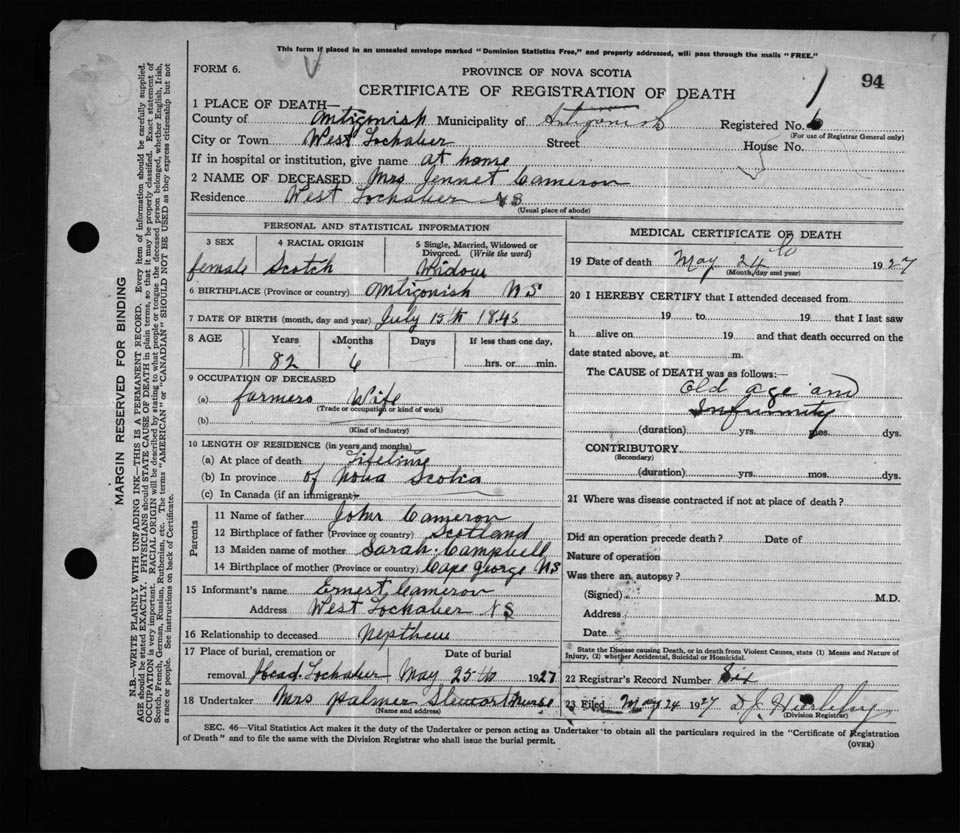 This form if placed in an unsealed envelope marked "Dominion Statistics Free," and properly addressed, will pass through the mails "FREE."
FORM 6.
PROVINCE OF NOVA SCOTIA
94
CERTIFICATE OF REGISTRATION OF DEATH
1 PLACE OF DEATH—
County of Antigonish Municipality of Antigonish Registered No. 6
(For use of Registrar General only)
City or Town West Lochaber Street House No.
If in hospital or institution, give name at home
2 NAME OF DECEASED Mrs Jennet Cameron
Residence West Lochaber NS
(Usual place of abode)
PERSONAL AND STATISTICAL INFORMATION
3 SEX 4 RACIAL ORIGIN 5 Single, Married, Widowed or Divorced. (Write the word)
female Scotch Widow
6 BIRTHPLACE (Province or country) Antigonish NS
7 DATE OF BIRTH (month, day and year) July 15th 1845
8 AGE Years Months Days If less than one day,
82 6 hrs. or min.
9 OCCUPATION OF DECEASED
(a) farmers Wife
(Trade or occupation or kind of work)
(b)
(Kind of industry)
10 LENGTH OF RESIDENCE (in years and months)
(a) At place of death Lifetime
(b) In province of Nova Scotia
(c) In Canada (if an immigrant)
Parents
11 Name of father John Cameron
12 Birthplace of father (Province or country) Scotland
13 Maiden name of mother Sarah Campbell
14 Birthplace of mother (Province or country) Cape George NS
15 Informant's name Ernest Cameron
Address West Lochaber NS
16 Relationship to deceased Nepthew
17 Place of burial, cremation or Date of burial
removal Head Lochaber May 25th 1927
18 Undertaker Mrs Palmer Stewart Nurse
(Name and address)
MEDICAL CERTIFICATE OF DEATH
19 Date of death May 24th 1927
(Month, day and year)
20 I HEREBY CERTIFY that I attended deceased from
19 to 19 that I last saw
h alive on 19 and that death occurred on the
date stated above, at m.
The CAUSE of DEATH was as follows:
Old age and
Infirmity
(duration) yrs. mos. dys.
CONTRIBUTORY
(Secondary)
(duration) yrs. mos. dys.
21 Where was disease contracted if not at place of death?
Did an operation precede death? Date of
Nature of operation
Was there an autopsy?
(Signed) M.D.
Address
Date
State the Disease causing Death, or in death from Violent Causes, state (1) Means and Nature of
Injury, (2) whether Accidental, Suicidal or Homicidal.
22 Registrar's Record Number Six
23 Filed May 24 1927 D. J.
(Division Registrar)
SEC. 46—Vital Statistics Act makes it the duty of the Undertaker or person acting as Undertaker to obtain all the particulars required in the "Certificate of Registration
of Death" and to file the same with the Division Registrar who shall issue the burial permit.
(OVER)
MARGIN RESERVED FOR BINDING
N.B.—WRITE PLAINLY WITH UNFADING INK—THIS IS A PERMANENT RECORD. Every item of information should be carefully supplied.
AGE should be stated EXACTLY. PHYSICIANS should STATE CAUSE OF DEATH in plain terms, so that it may be properly classified. Exact statement of
OCCUPATION is very important. RACIAL ORIGIN will be described by stating to what people or tongue the deceased person belonged, whether English, Irish,
Scotch, French, German, Russian, Ruthenian, etc. The terms "AMERICAN" or "CANADIAN" SHOULD NOT BE USED as they express citizenship but not
a race or people. See instructions on back of Certificate.